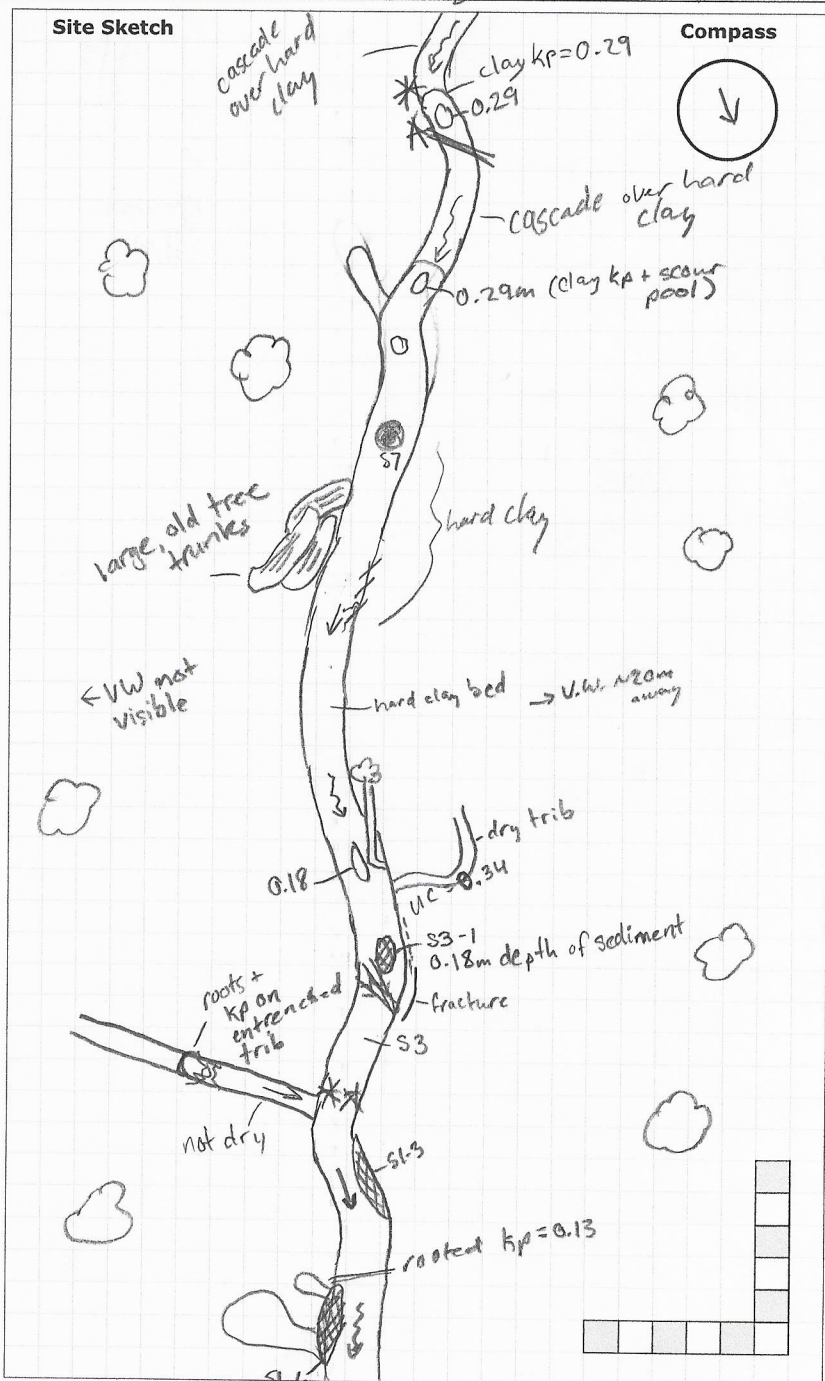 Site Sketch
Compass
cascade
over hard
clay
clay kp = 0.29
0.29
cascade over hard
clay
0.29m (clay kp + scour
pool)
S7
large, old tree
trunks
hard clay
← VW not
visible
hard clay bed
→ V.W. ~20m
away
dry trib
0.18
0.34
UC
S3-1
0.18m depth of sediment
roots +
kp on
entrenched
trib
fracture
S3
not dry
S1-3
rooted kp = 0.13